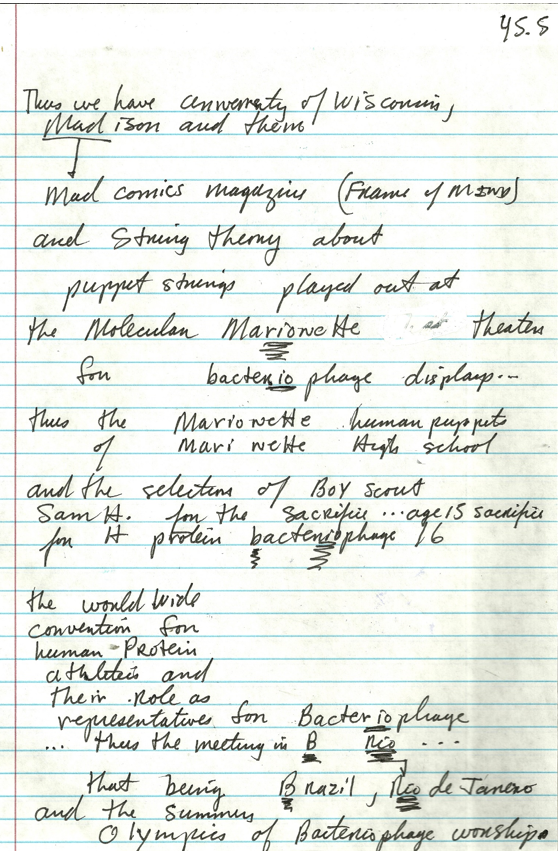 45.5
Thus we have university of Wisconsin,
Madison and them
Mad comics magazine (Frame of MIND)
and String theory about
puppet strings played out at
the Molecular Marionette theater
for bacteriophage displays...
thus the Marionette human puppets
of Marinette High school
and the selection of Boy scout
Sam H. for the sacrifice ... age 15 sacrifice
for H protein bacteriophage
the world wide
convention for
human-Protein
athletes and
their role as
representatives for Bacteriophage
... thus the meeting in B Rio ...
that being Brazil, Rio de Janero
and the summer
Olympics of Bacteriophage worship.